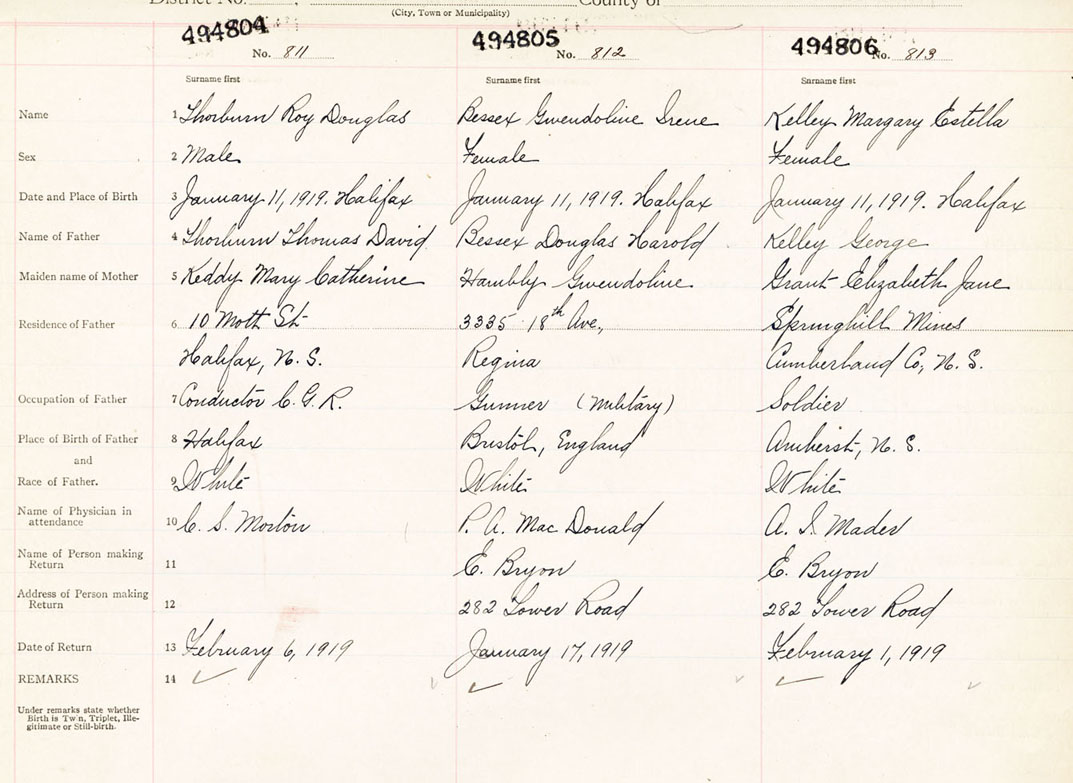 District No. , County of
(City, Town or Municipality)
494804 494805 494806
No. 811 No. 812 No. 813
Surname first Surname first Surname first
Name 1 Thorburn Roy Douglas Bessex Gwendoline Irene Kelley Margary Estella
Sex 2 Male Female Female
Date and Place of Birth 3 January 11, 1919. Halifax January 11, 1919. Halifax January 11, 1919. Halifax
Name of Father 4 Thorburn Thomas David Bessex Douglas Harold Kelley George
Maiden name of Mother 5 Keddy Mary Catherine Hambly Gwendoline Grant Elizabeth Jane
Residence of Father 6 10 Mott St. 3335 18th Ave., Springhill Mines
Halifax, N. S. Regina Cumberland Co, N. S.
Occupation of Father 7 Conductor C. G. R. Gunner (Military) Soldier
Place of Birth of Father 8 Halifax Bristol, England Amherst, N. S.
and
Race of Father. 9 White White White
Name of Physician in
attendance 10 C. S. Morton P. A. Mac Donald A. I. Mader
Name of Person making
Return 11 E. Bryon E. Bryon
Address of Person making
Return 12 282 Tower Road 282 Tower Road
Date of Return 13 February 6, 1919 January 17, 1919 February 1, 1919
REMARKS 14
Under remarks state whether
Birth is Twin, Triplet, Ille-
gitimate or Still-birth.